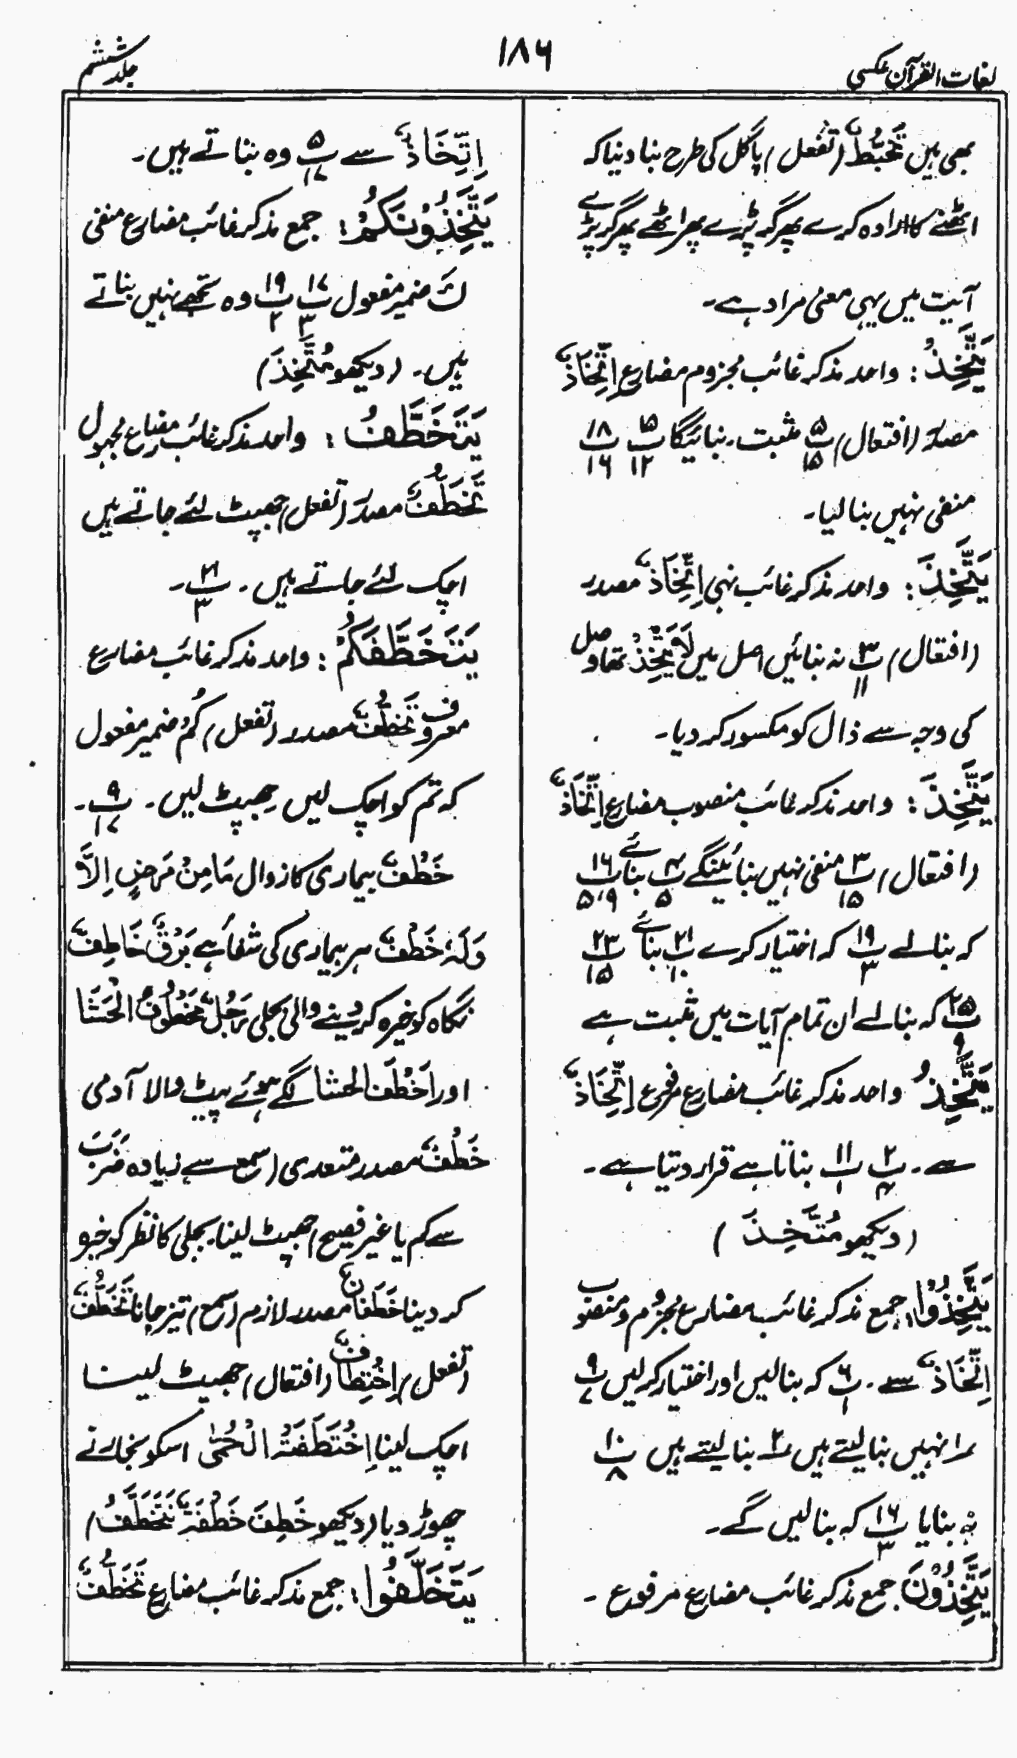 لغات القرآن عکسی
۱۸۶
جلد ششم
بھی ہیں تَخَبُّطٌ (تفعل) پاگل کی طرح بنا دینا کہ
اٹھنے کا ارادہ کرے پھر گر پڑے پھر اٹھے پھر گر پڑے
آیت میں یہی معنی مراد ہے۔
یَتَّخِذُ: واحد مذکر غائب مجزوم مضارع اِتِّخَاذٌ
مصدر (افتعال) پ ۵ ۱۵ مثبت۔ بنائیگا پ ۱۵ ۱۲ پ ۱۸ ۱۶
منفی نہیں بنا لیا۔
یَتَّخِذَ: واحد مذکر غائب نہی اِتِّخَاذٌ مصدر
(افتعال) پ ۳ ۱۱ نہ بنائیں اصل میں لَا یَتَّخِذْ تھا وصل
کی وجہ سے ذال کو مکسور کر دیا۔
یَتَّخِذَ: واحد مذکر غائب منصوب مضارع اِتِّخَاذٌ
(افتعال) پ ۳ ۱۵ منفی نہیں بنائینگے پ ۴ ۵ بنائے پ ۱۶ ۵،۹
کہ بنالے پ ۱۹ ۳ کہ اختیار کرے پ ۲۱ ۱۰ بنائے پ ۲۳ ۱۵
پ ۲۵ ۹ کہ بنالے ان تمام آیات میں مثبت ہے
یَتَّخِذُ واحد مذکر غائب مضارع مرفوع اِتِّخَاذٌ
سے۔ پ ۲ ۴ پ ۱۱ ۱ بناتا ہے قرار دیتا ہے۔
(دیکھو مُتَّخِذَ)
یَتَّخِذُوْا: جمع مذکر غائب مضارع مجزوم و منصوب
اِتِّخَاذٌ سے۔ پ ۶ ۱ کہ بنالیں اور اختیار کر لیں پ ۹ ۷
۱ انہیں بنا لیتے ہیں ۲ بنا لیتے ہیں پ ۱۰ ۸
نہ بنایا پ ۱۶ ۳ کہ بنالیں گے۔
یَتَّخِذُوْنَ جمع مذکر غائب مضارع مرفوع۔
اِتِّخَاذٌ سے پ ۵ ۱۷ وہ بناتے ہیں۔
یَتَّخِذُوْنَکُمْ: جمع مذکر غائب مضارع منفی
کَ ضمیر مفعول پ ۱۷ ۳ پ ۱۹ ۲ وہ تجھے نہیں بناتے
ہیں۔ (دیکھو مُتَّخِذَ)
یُتَخَطَّفُ: واحد مذکر غائب مضارع مجہول
تَخَطُّفٌ مصدر (تفعل) جھپٹ لئے جاتے ہیں
اچک لئے جاتے ہیں۔ پ ۲۱ ۳۔
یَتَخَطَّفَکُمْ: واحد مذکر غائب مضارع
معروف تَخَطُّفٌ مصدر (تفعل) کُمْ ضمیر مفعول
کہ تم کو اچک لیں جھپٹ لیں۔ پ ۹ ۱۷۔
خَطْفٌ بیماری کا زوال مَا مِنْ مَرَضٍ اِلَّا
وَلَہٗ خَطْفٌ ہر بیماری کی شفا ہے بَرْقٌ خَاطِفٌ
نگاہ کو خیرہ کر دینے والی بجلی رَجُلٌ مَخْطُوْفٌ الْحَشَا
اور اَخْطَفُ الحشا لگے ہوئے پیٹ والا آدمی
خَطْفٌ مصدر متعدی (سمع سے زیادہ ضَرَبَ
سے کم یا غیر فصیح) جھپٹ لینا۔ بجلی کا نظر کو خیرہ
کر دینا خَطَفَانٌ مصدر لازم (سمع) تیز جانا تَخَطُّفٌ
(تفعل) اِخْتِطَافٌ (افتعال) جھپٹ لینا
اچک لینا اِخْتَطَفَتْہُ الْحُمّٰی اسکو بخار نے
چھوڑ دیا (دیکھو خَطِفَ خَطْفَۃً نُتَخَطَّفُ)
یَتَخَلَّفُوا: جمع مذکر غائب مضارع تَخَلُّفٌ